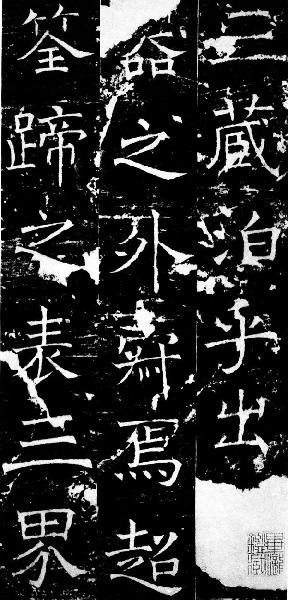 三藏泊乎出
器之外寂焉超
筌蹄之表三界